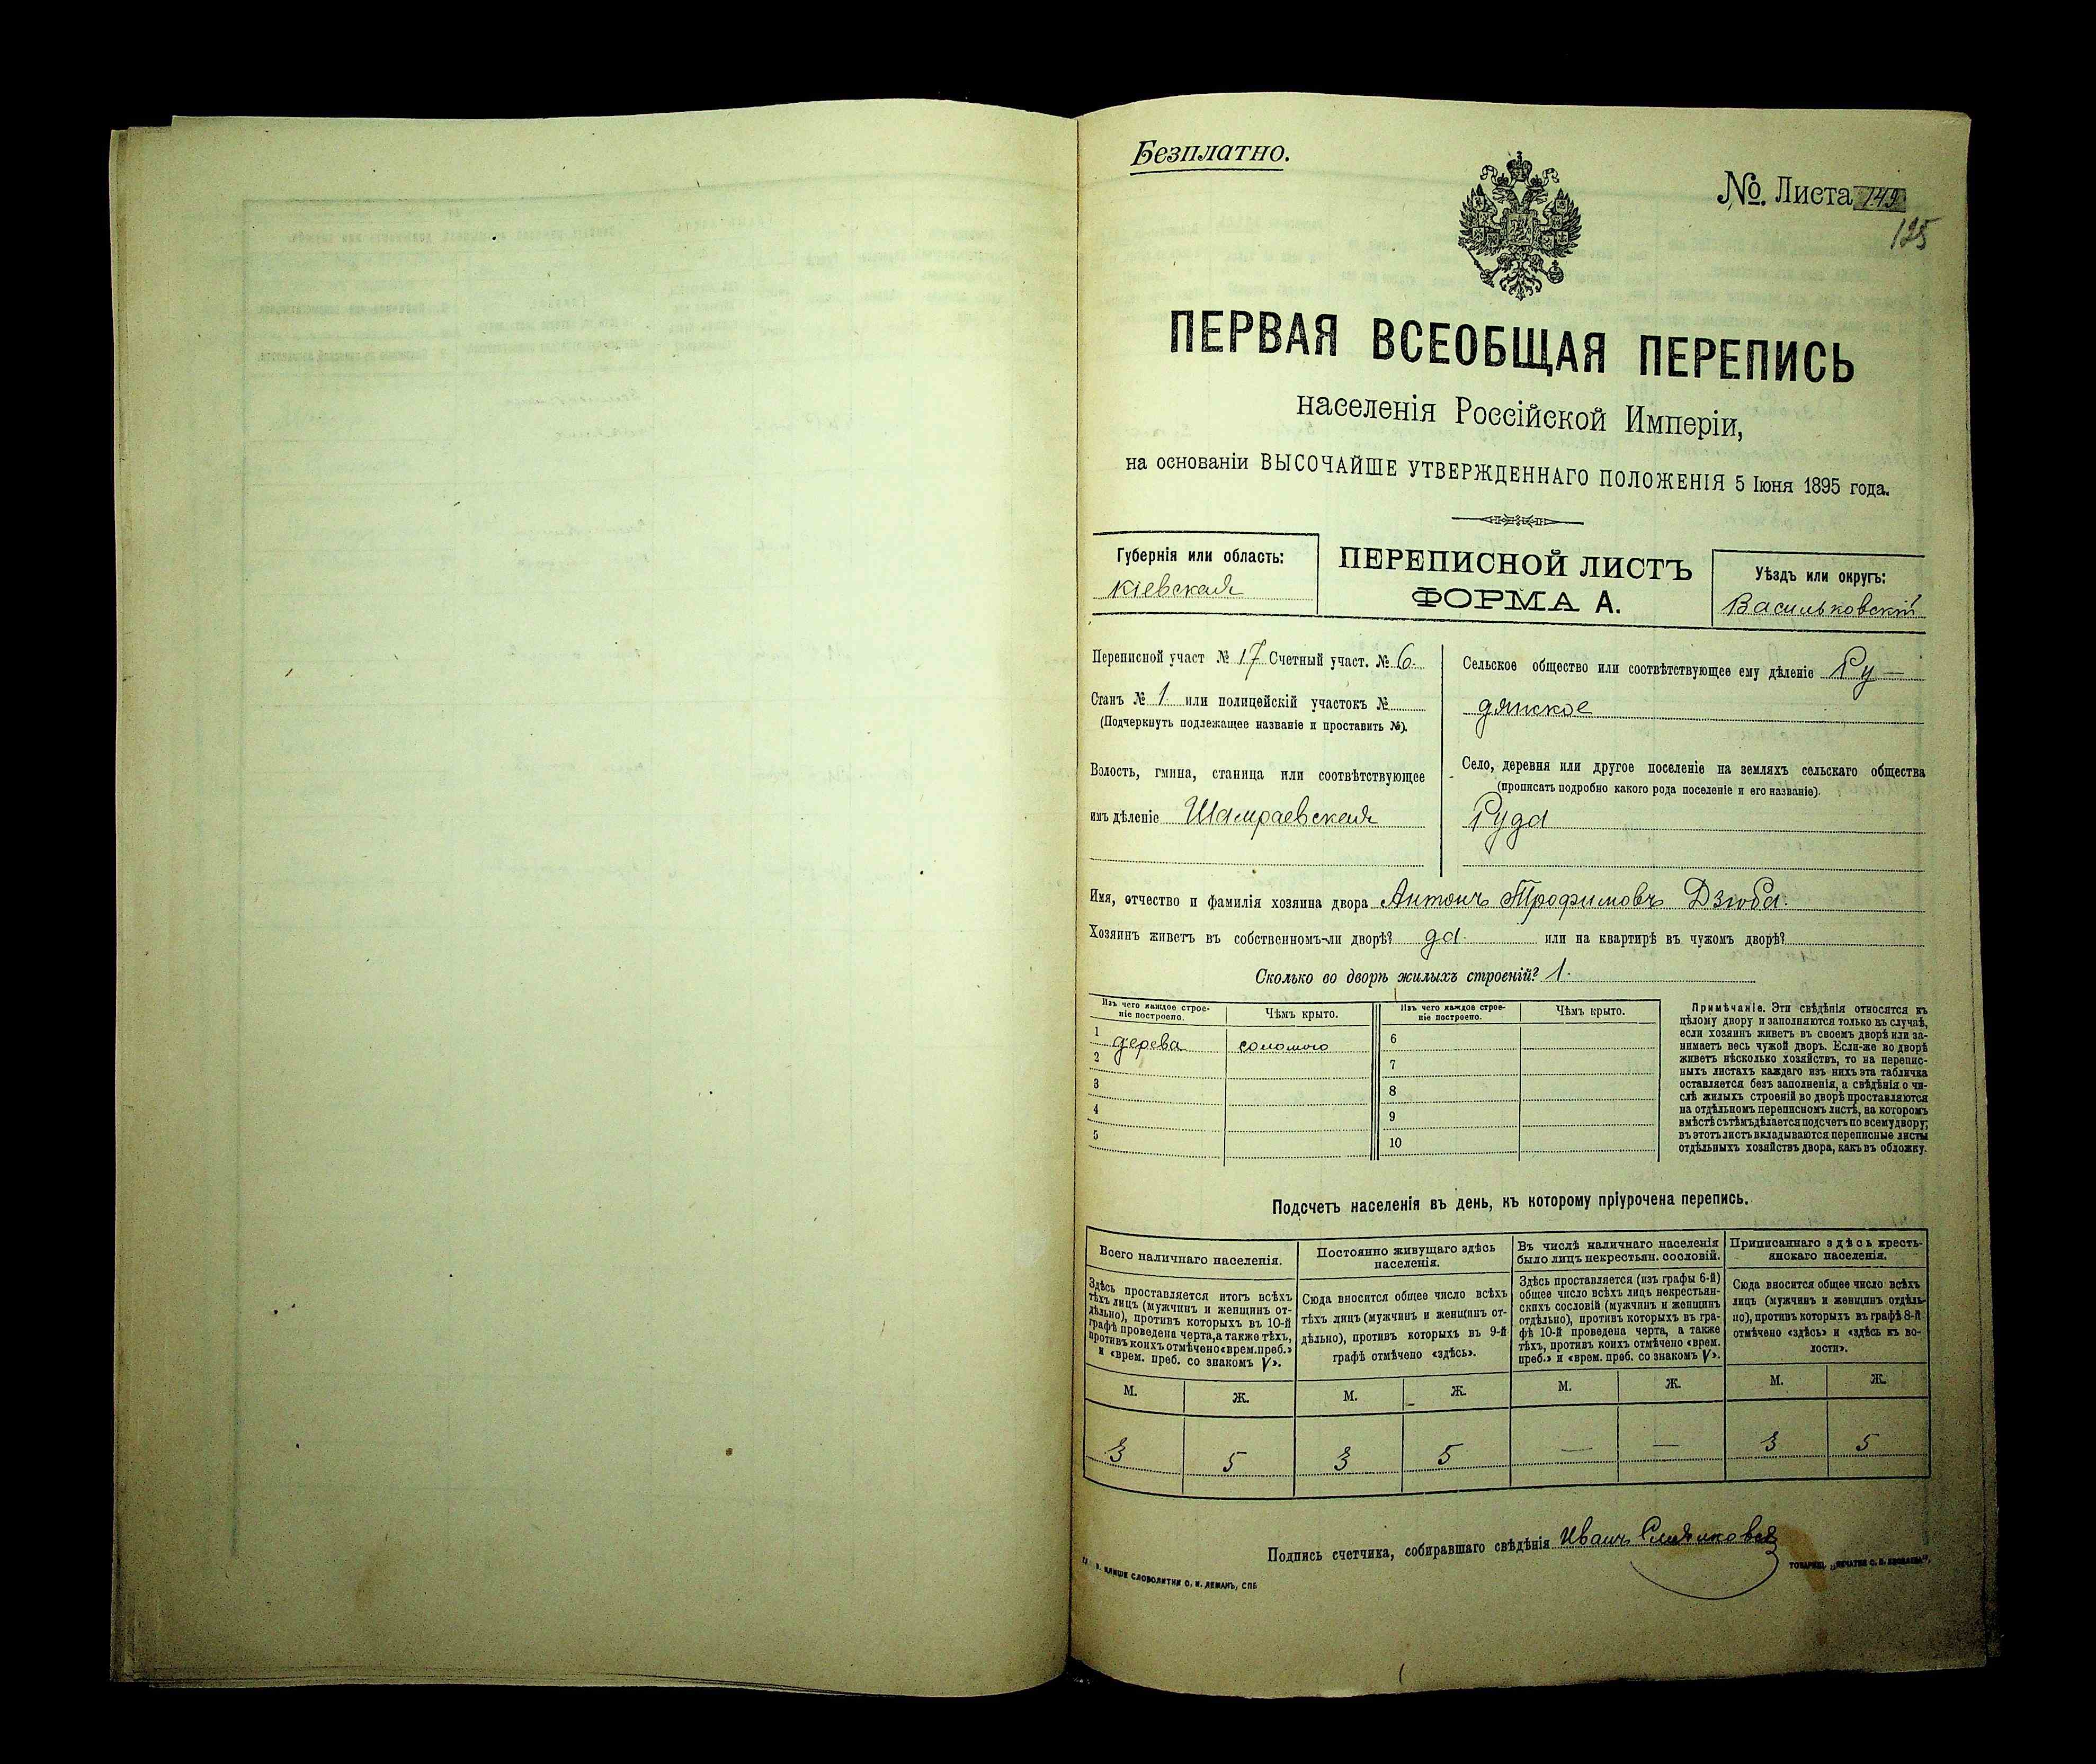 Безплатно.
№. Листа 149
125
ПЕРВАЯ ВСЕОБЩАЯ ПЕРЕПИСЬ
населенія Россійской Имперіи,
на основаніи ВЫСОЧАЙШЕ УТВЕРЖДЕННАГО ПОЛОЖЕНІЯ 5 Іюня 1895 года.
Губернія или область:
Кіевская
ПЕРЕПИСНОЙ ЛИСТЪ
ФОРМА А.
Уѣздъ или округъ:
Васильковскій
Переписной участ № 17 Счетный участ. № 6.
Станъ № 1 или полицейскій участокъ №
(Подчеркнуть подлежащее названіе и проставить №).
Волость, гмина, станица или соотвѣтствующее
имъ дѣленіе Шамраевская
Сельское общество или соотвѣтствующее ему дѣленіе Ру-
дянское
Село, деревня или другое поселеніе на земляхъ сельскаго общества
(прописать подробно какого рода поселеніе и его названіе).
Руда
Имя, отчество и фамилія хозяина двора Антонъ Трофимовъ Дзюба.
Хозяинъ живетъ въ собственномъ-ли дворѣ? да. или на квартирѣ въ чужомъ дворѣ?
Сколько во дворѣ жилыхъ строеній? 1.
Изъ чего каждое строе-
ніе построено.
Чѣмъ крыто.
Изъ чего каждое строе-
ніе построено.
Чѣмъ крыто.
1 дерева соломою
2
3
4
5
6
7
8
9
10
Примѣчаніе. Эти свѣдѣнія относятся къ
цѣлому двору и заполняются только въ случаѣ,
если хозяинъ живетъ въ своемъ дворѣ или за-
нимаетъ весь чужой дворъ. Если-же во дворѣ
живетъ нѣсколько хозяйствъ, то на перепис-
ныхъ листахъ каждаго изъ нихъ эта табличка
оставляется безъ заполненія, а свѣдѣнія о чи-
слѣ жилыхъ строеній во дворѣ проставляются
на отдѣльномъ переписномъ листѣ, на которомъ
вмѣстѣ съ тѣмъ дѣлается подсчетъ по всему двору;
въ этотъ листъ вкладываются переписные листы
отдѣльныхъ хозяйствъ двора, какъ въ обложку.
Подсчетъ населенія въ день, къ которому пріурочена перепись.
Всего наличнаго населенія.
Здѣсь проставляется итогъ всѣхъ
тѣхъ лицъ (мужчинъ и женщинъ от-
дѣльно), противъ которыхъ въ 10-й
графѣ проведена черта, а также тѣхъ,
противъ коихъ отмѣчено «врем. преб.»
и «врем. преб. со знакомъ V».
Постоянно живущаго здѣсь
населенія.
Сюда вносится общее число всѣхъ
тѣхъ лицъ (мужчинъ и женщинъ от-
дѣльно), противъ которыхъ въ 9-й
графѣ отмѣчено «здѣсь».
Въ числѣ наличнаго населенія
было лицъ некрестьян. сословій.
Здѣсь проставляется (изъ графы 6-й)
общее число всѣхъ лицъ некрестьян-
скихъ сословій (мужчинъ и женщинъ
отдѣльно), противъ которыхъ въ гра-
фѣ 10-й проведена черта, а также
тѣхъ, противъ коихъ отмѣчено «врем.
преб.» и «врем. преб. со знакомъ V».
Приписаннаго здѣсь кресть-
янскаго населенія.
Сюда вносится общее число всѣхъ
лицъ (мужчинъ и женщинъ отдѣль-
но), противъ которыхъ въ графѣ 8-й
отмѣчено «здѣсь» и «здѣсь къ во-
лости».
М. Ж. М. Ж. М. Ж. М. Ж.
3 5 3 5 — — 3 5
Подпись счетчика, собиравшаго свѣдѣнія Иванъ
КЛИШЕ СЛОВОЛИТНИ О. И. ЛЕМАНЪ, СПБ